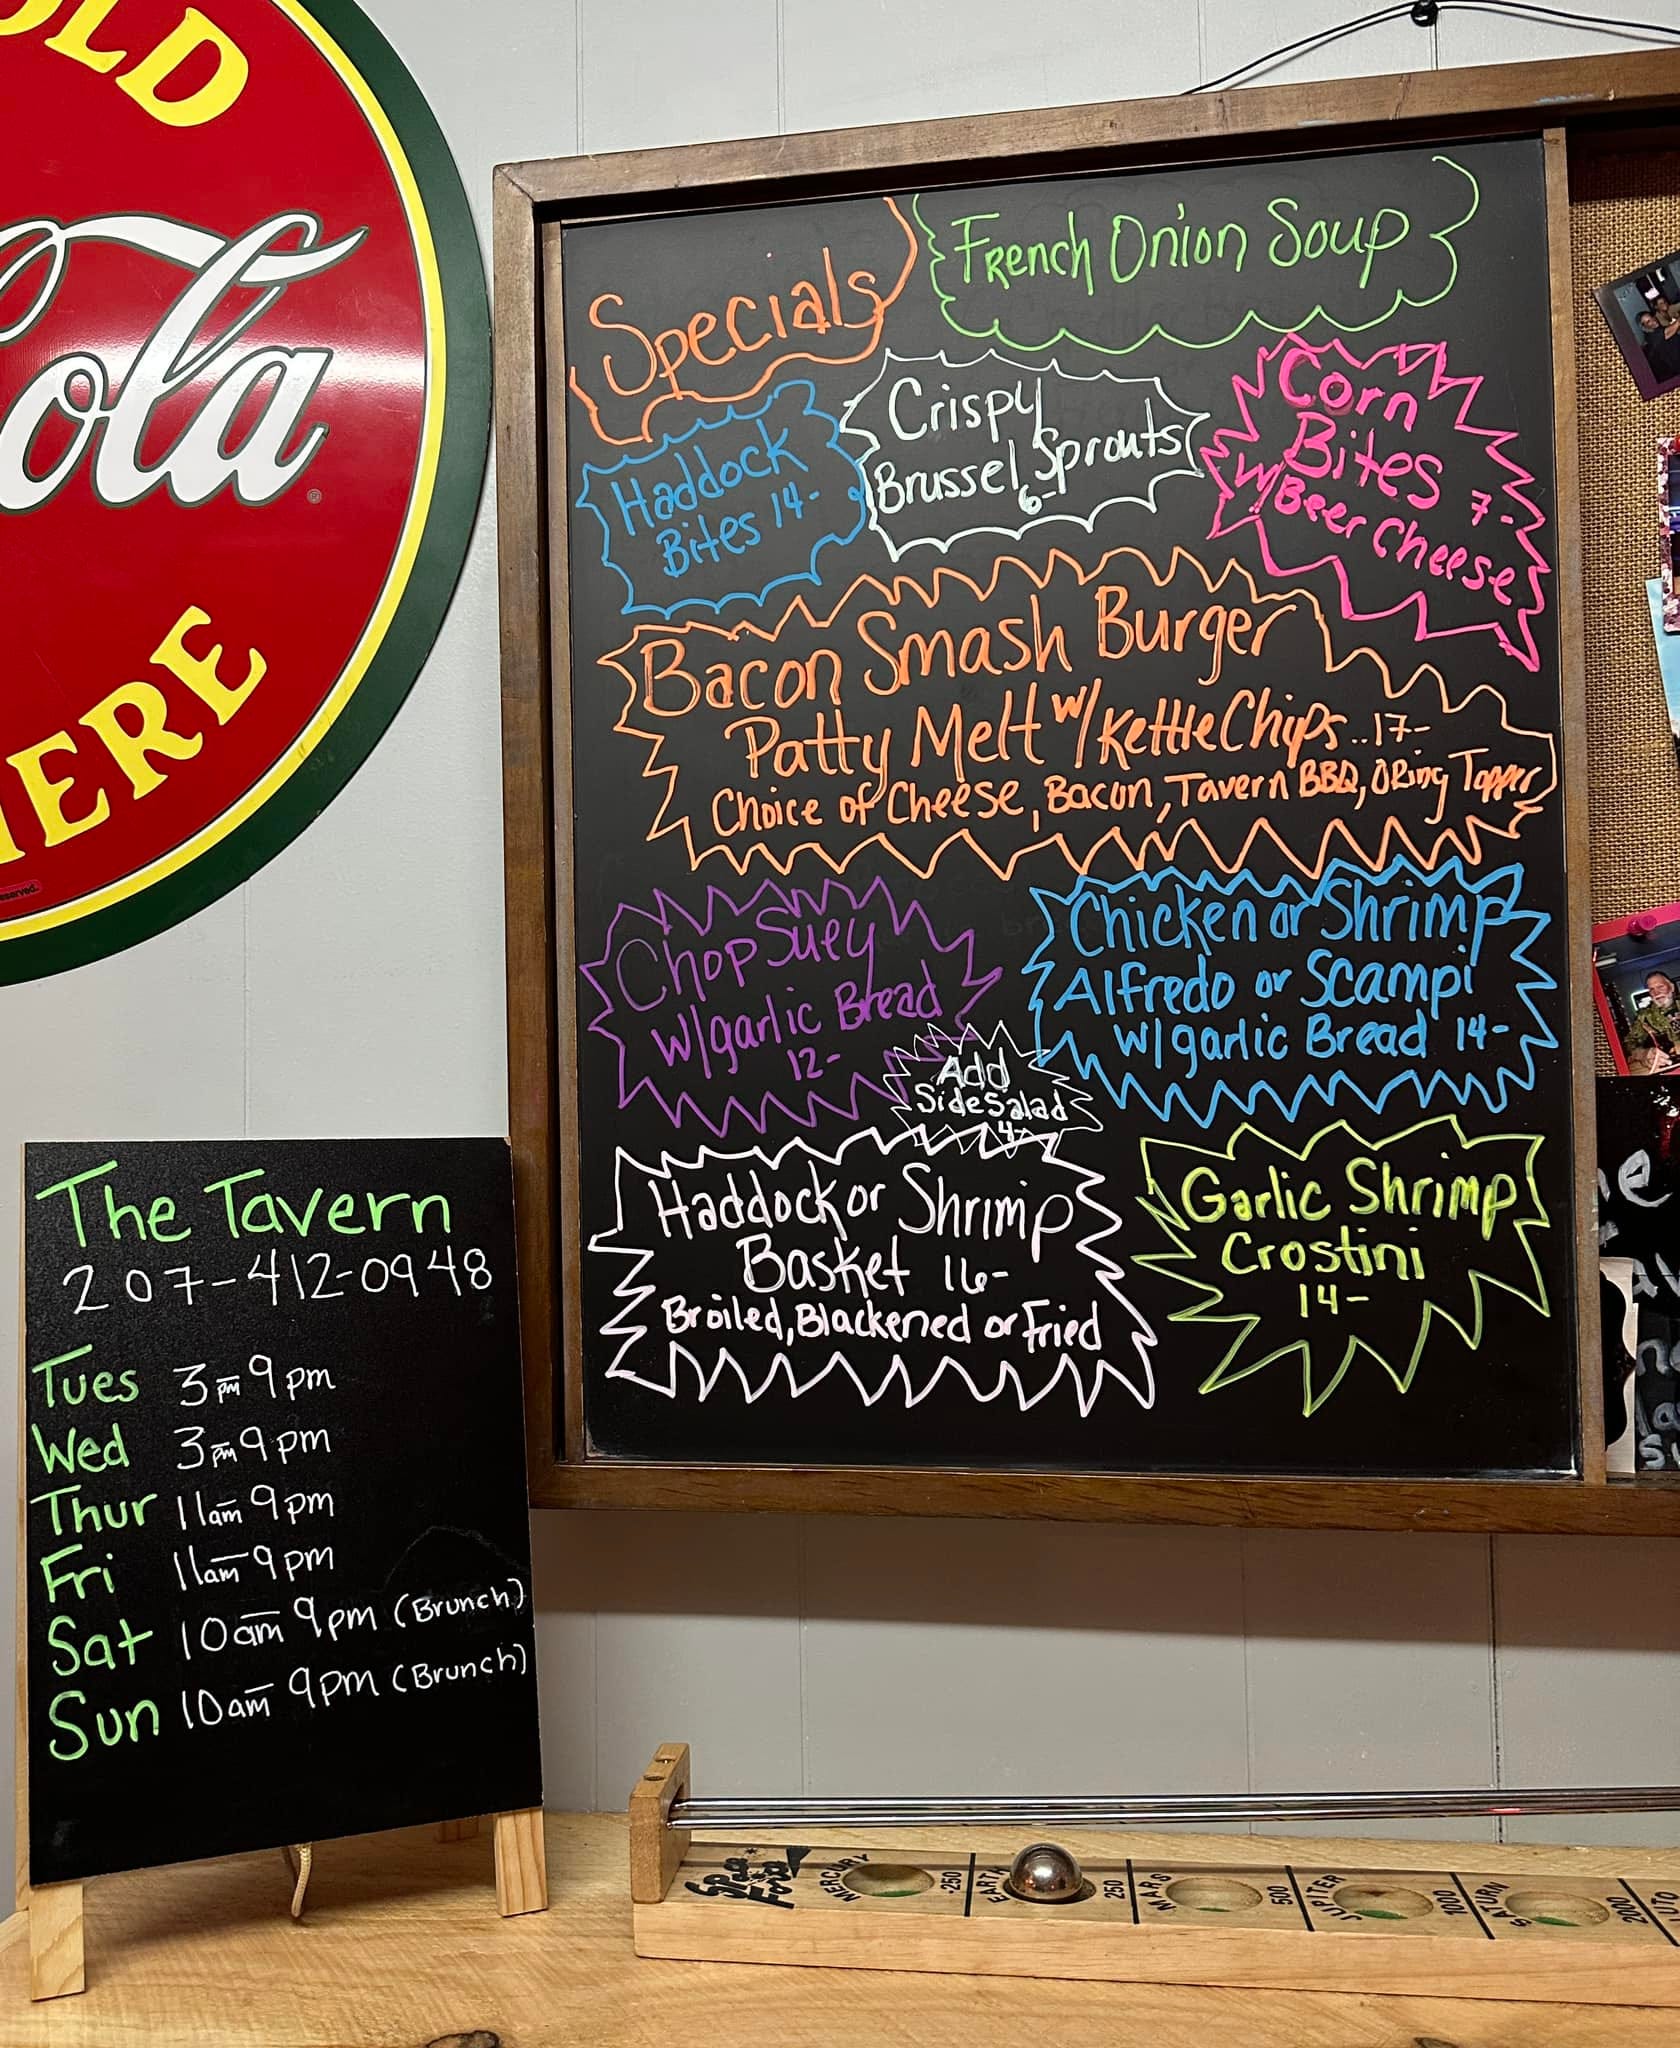 OLD
Cola
®
HERE
eserved.
Specials
French Onion Soup
Haddock
Bites 14-
Crispy
Brussel Sprouts
6-
Corn
Bites 7-
w/ Beer Cheese
Bacon Smash Burger
Patty Melt w/ Kettle Chips .. 17-
Choice of Cheese, Bacon, Tavern BBQ, O Ring Topper
Chop Suey
w/garlic Bread
12-
Chicken or Shrimp
Alfredo or Scampi
w/garlic Bread 14-
Add
Side Salad
4-
Haddock or Shrimp
Basket 16-
Broiled, Blackened or Fried
Garlic Shrimp
Crostini
14-
The Tavern
207-412-0948
Tues 3pm-9pm
Wed 3pm-9pm
Thur 11am-9pm
Fri 11am-9pm
Sat 10am-9pm (Brunch)
Sun 10am-9pm (Brunch)
MERCURY -250
EARTH 250
MARS 500
JUPITER 1000
SATURN 2000